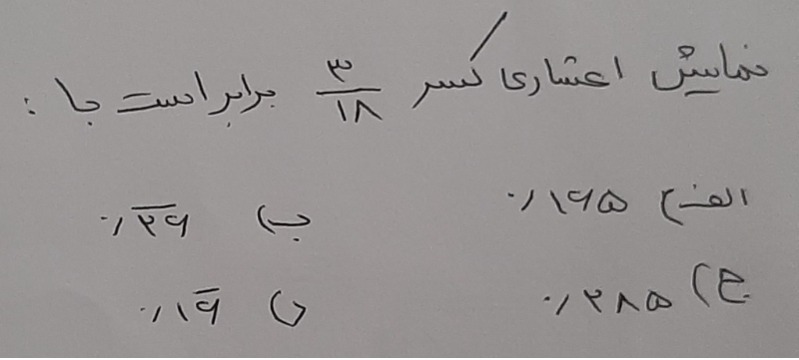 نمایش اعشاری کسر ۳/۱۸ برابر است با :
الف) ۰/۱۶۵
ب) ۰/۲۶̅
ج) ۰/۲۸۵
د) ۰/۱۶̅